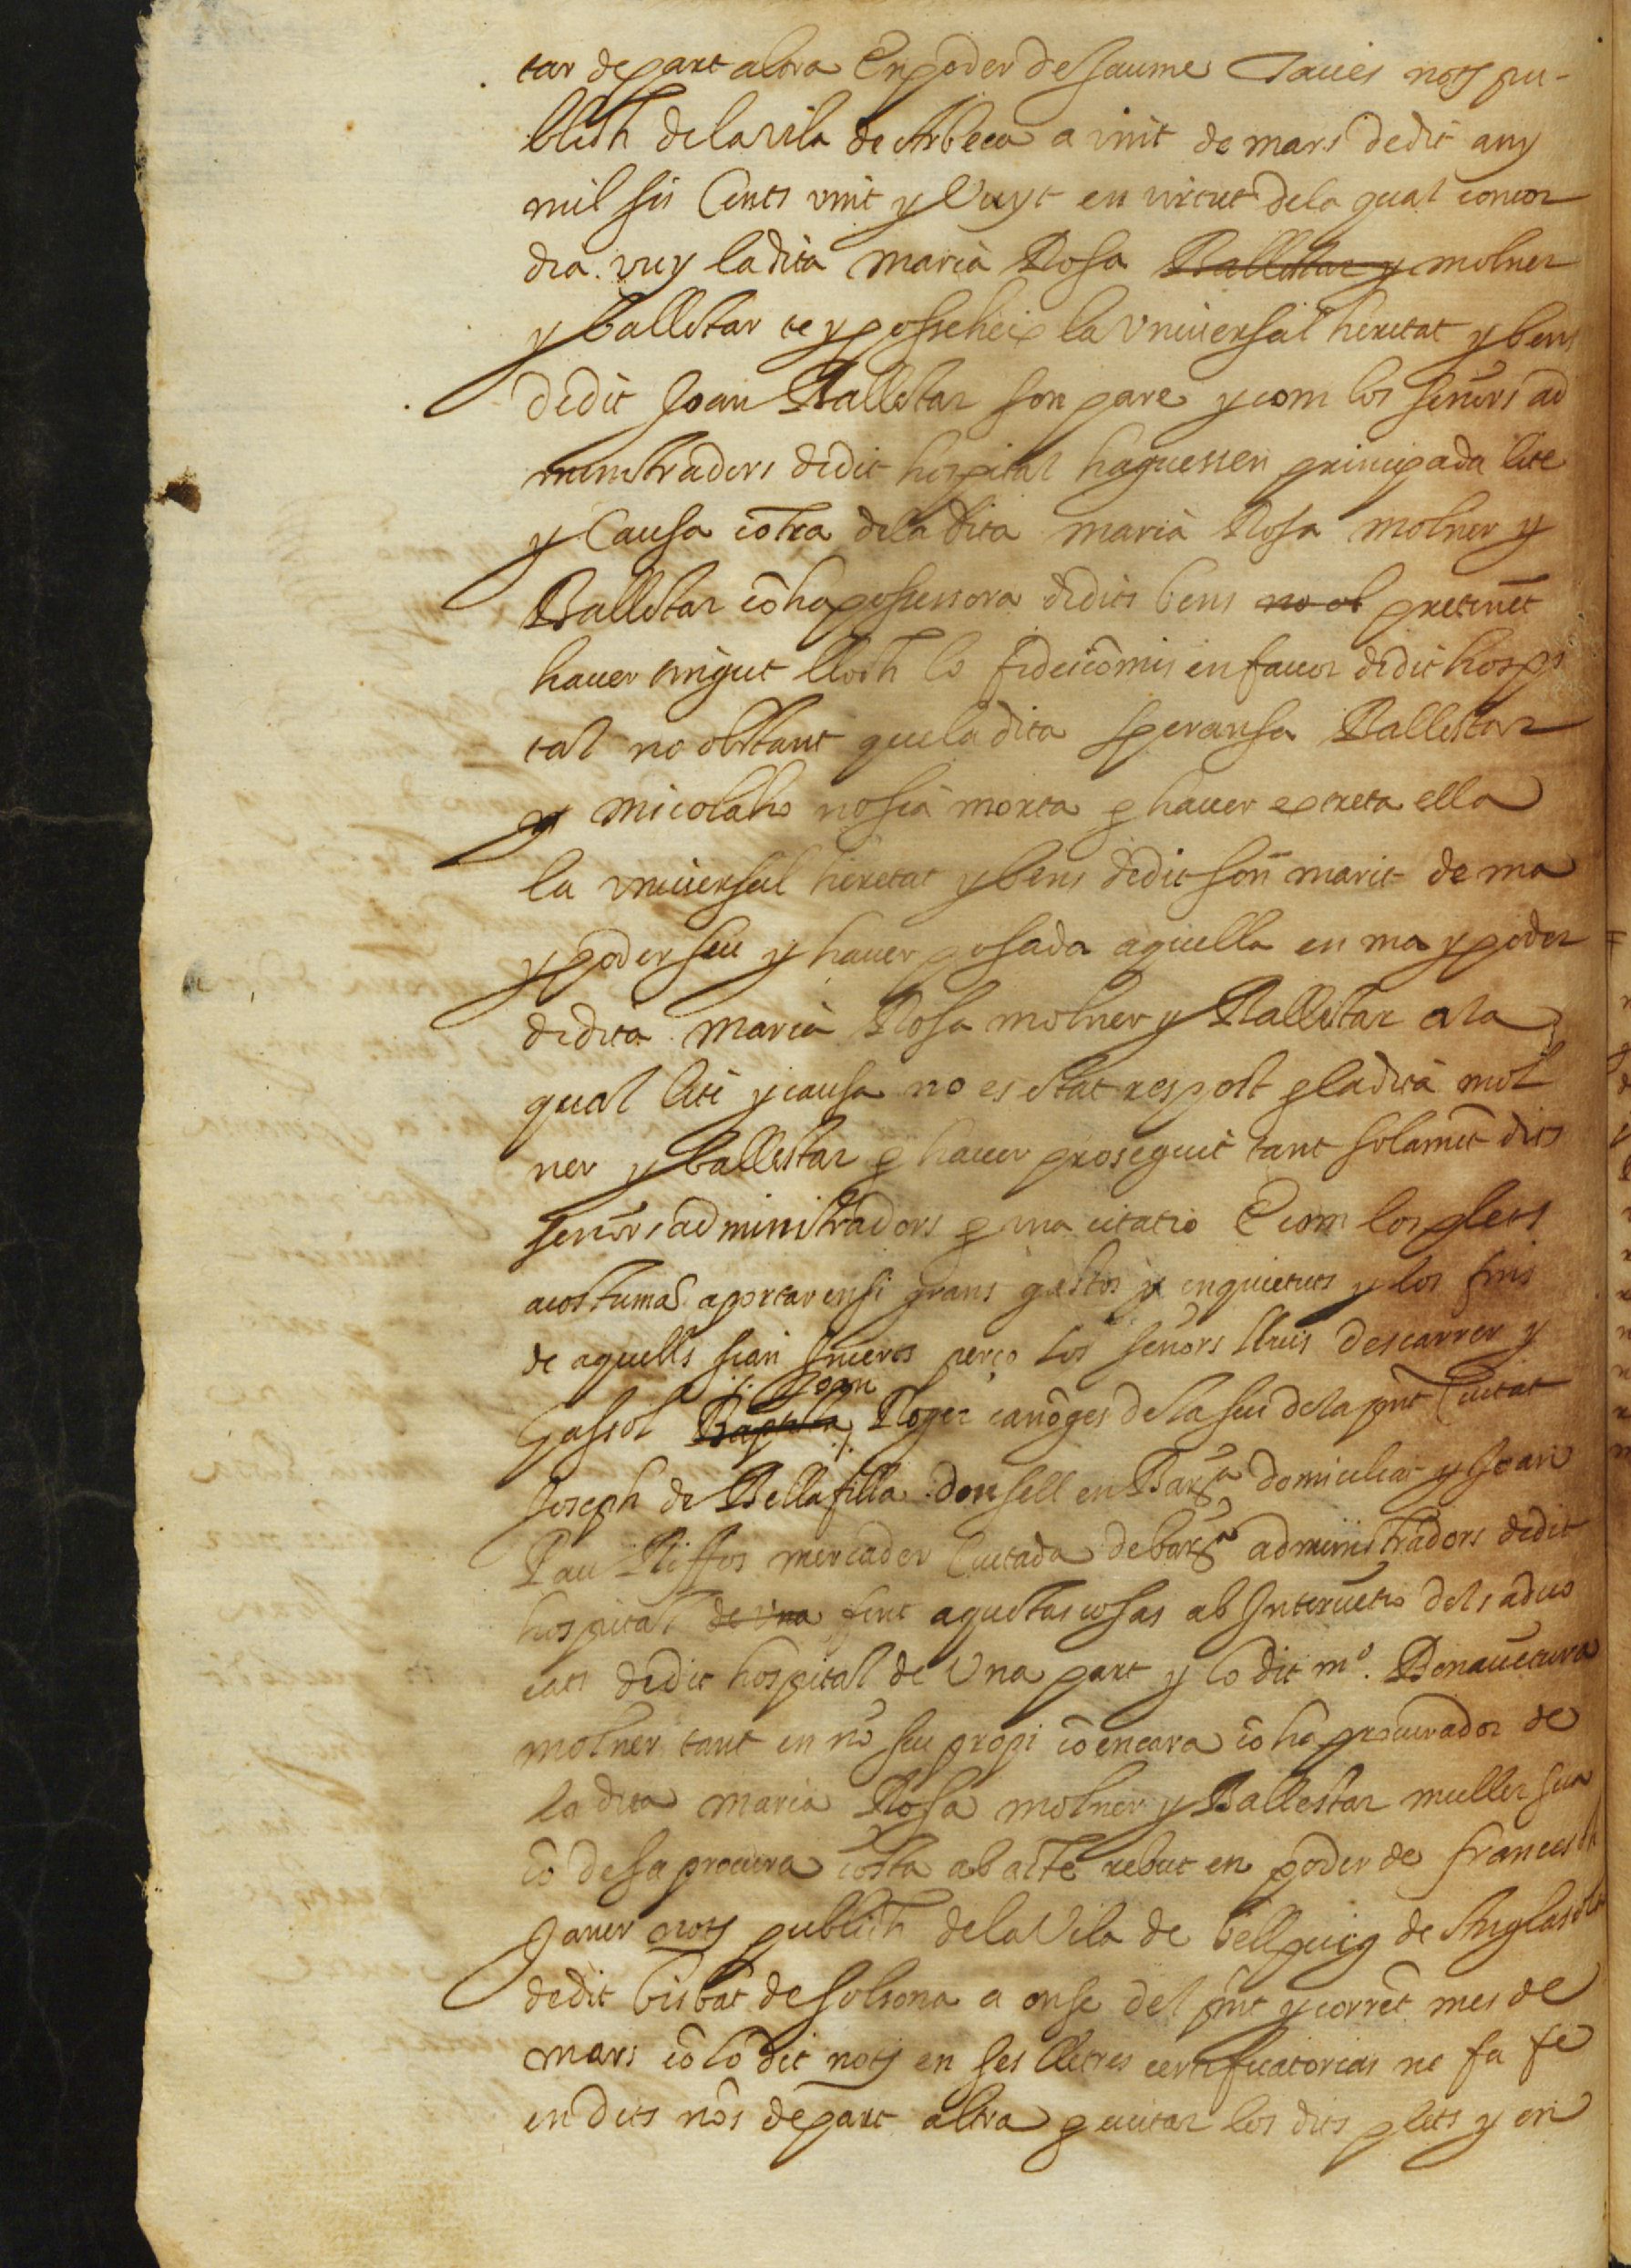 tar de part altra En poder de Jaume Taues nots pu-
blich dela vila de Arbeca a vint de mars dedit any
mil sis Cents vint y Vuyt en virtut dela qual concor
dia vuy la dita maria Rosa Ballestar y molner
y ballestar te y posseheix la vniuersal heretat y bens
dedit Joan Ballestar son pare y com los señors ad
ministradors dedit hospital haguessen principiada lite
y Causa cõtra dela dita maria Rosa molner y
Ballestar cõ ha possessora de dits bens no ob pretenẽt
hauer tingut lloch lo fideicõmis en fauor de dit hospi
tal no obstant que la dita speransa Ballestar
y micolaho no sia morta p hauer extreta ella
la vniuersal heretat y bens dedit son marit de ma
y poder seu y hauer posada aquella en ma y poder
de dita maria Rosa molner y Ballestar a la
qual liti y causa no es stat respost p la dita mol
ner y ballestar p hauer proseguit tant solamẽt dits
señors administradors p vna citatio E com los plets
acostumã aportar en si grans gastos y inquietuts y los fins
de aquells sian Incerts perço los señors lluis descarrer y
Gassol Baptista Joan Roger canõges dela seu dela pñt Ciutat
Joseph de Bellafilla donsell en Barña domiciliat y Joan
Pau Riffos mercader Ciutada de barña administradors dedit
hospital de vna fent aquestas cosas ab Interuẽtio dels aduo
cats dedit hospital de Vna part y lo dit mº. Bonauẽtura
molner tant en nõ seu propi cõ encara cõ ha procurador de
la dita maria Rosa molner y Ballestar muller sua
cõ de sa procura cõsta ab acte rebut en poder de francesch
Janer nots publich dela Vila de bellpuig de Anglasola
dedit bisbat de solsona a onse del pñt y corrẽt mes de
mars cõ lo dit nots en ses lletres certificatorias ne fa fe
en dits nõs de part altra p euitar los dits plets y en